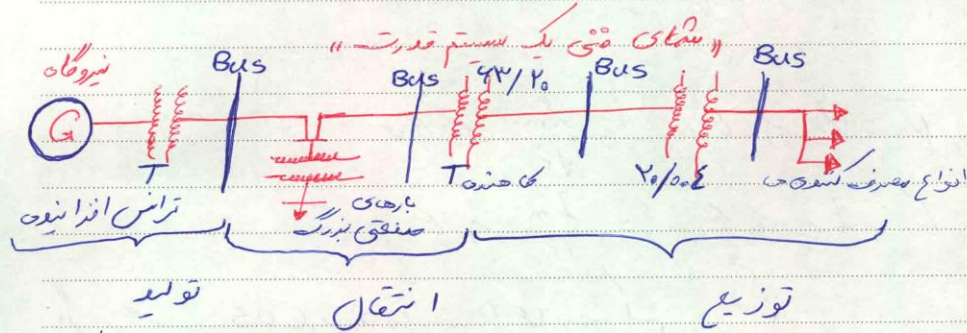 "شمای فنی یک سیستم قدرت"
نیروگاه
Bus
Bus
۶۳/۲۰
Bus
Bus
G
T
کاهنده T
۲۰/۰.۰۴
انواع مصرف کننده ها
ترانس افزاینده
بارهای
صنعتی بزرگ
تولید
انتقال
توزیع